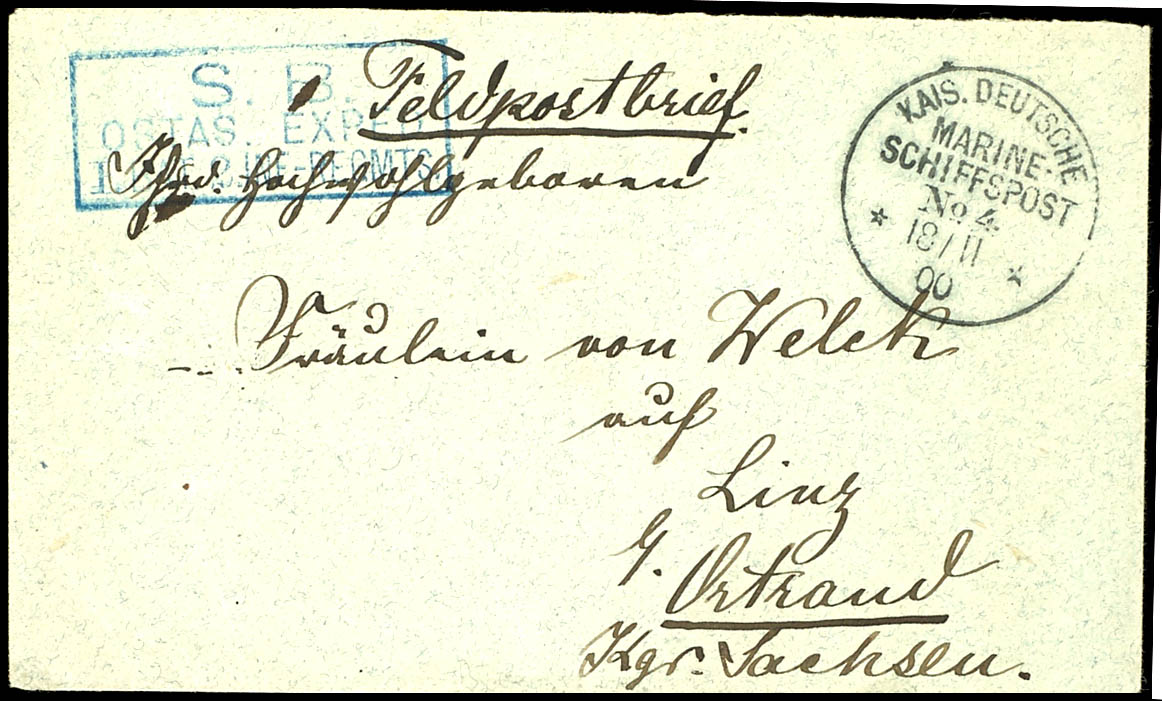 S. B.
OSTAS. EXPED.
INF.-REGMTS
Feldpostbrief.
Hochwohlgeboren
KAIS. DEUTSCHE
MARINE-
SCHIFFSPOST
No 4.
18/11
00
Fräulein von Welck
auf
Linz
b. Ortrand
Kgr. Sachsen.